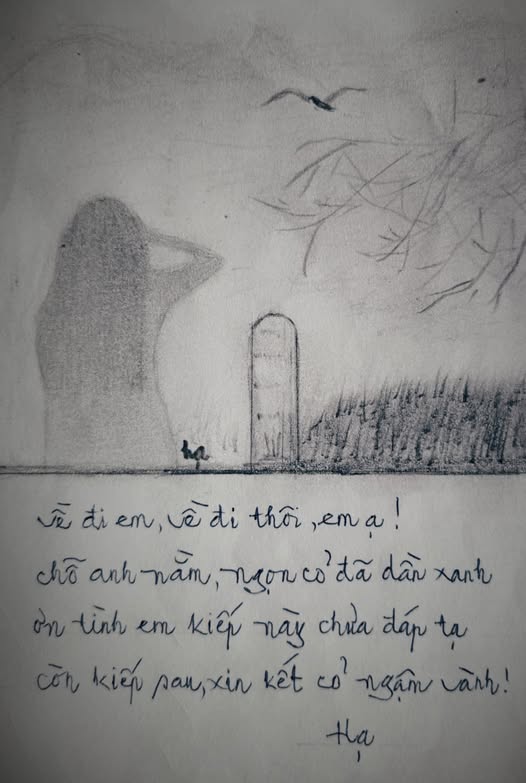 hạ
về đi em, về đi thôi, em ạ!
chỗ anh nằm, ngọn cỏ đã dần xanh
ơn tình em kiếp này chưa đáp tạ
còn kiếp sau, xin kết cỏ ngậm vành!
Hạ